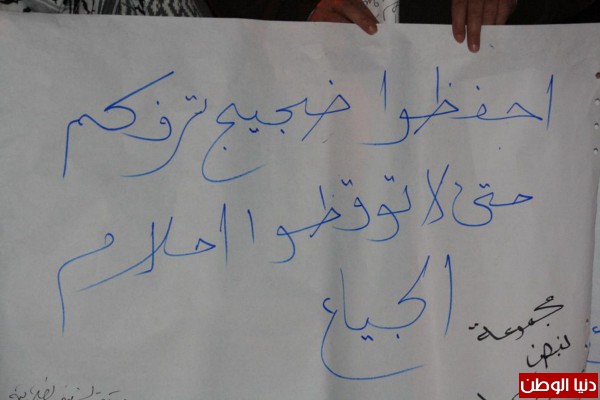 احفظوا ضجيج ترفكم
حتى لا توقظوا احلام
الجياع
مجموعة
نبض
دنيا الوطن